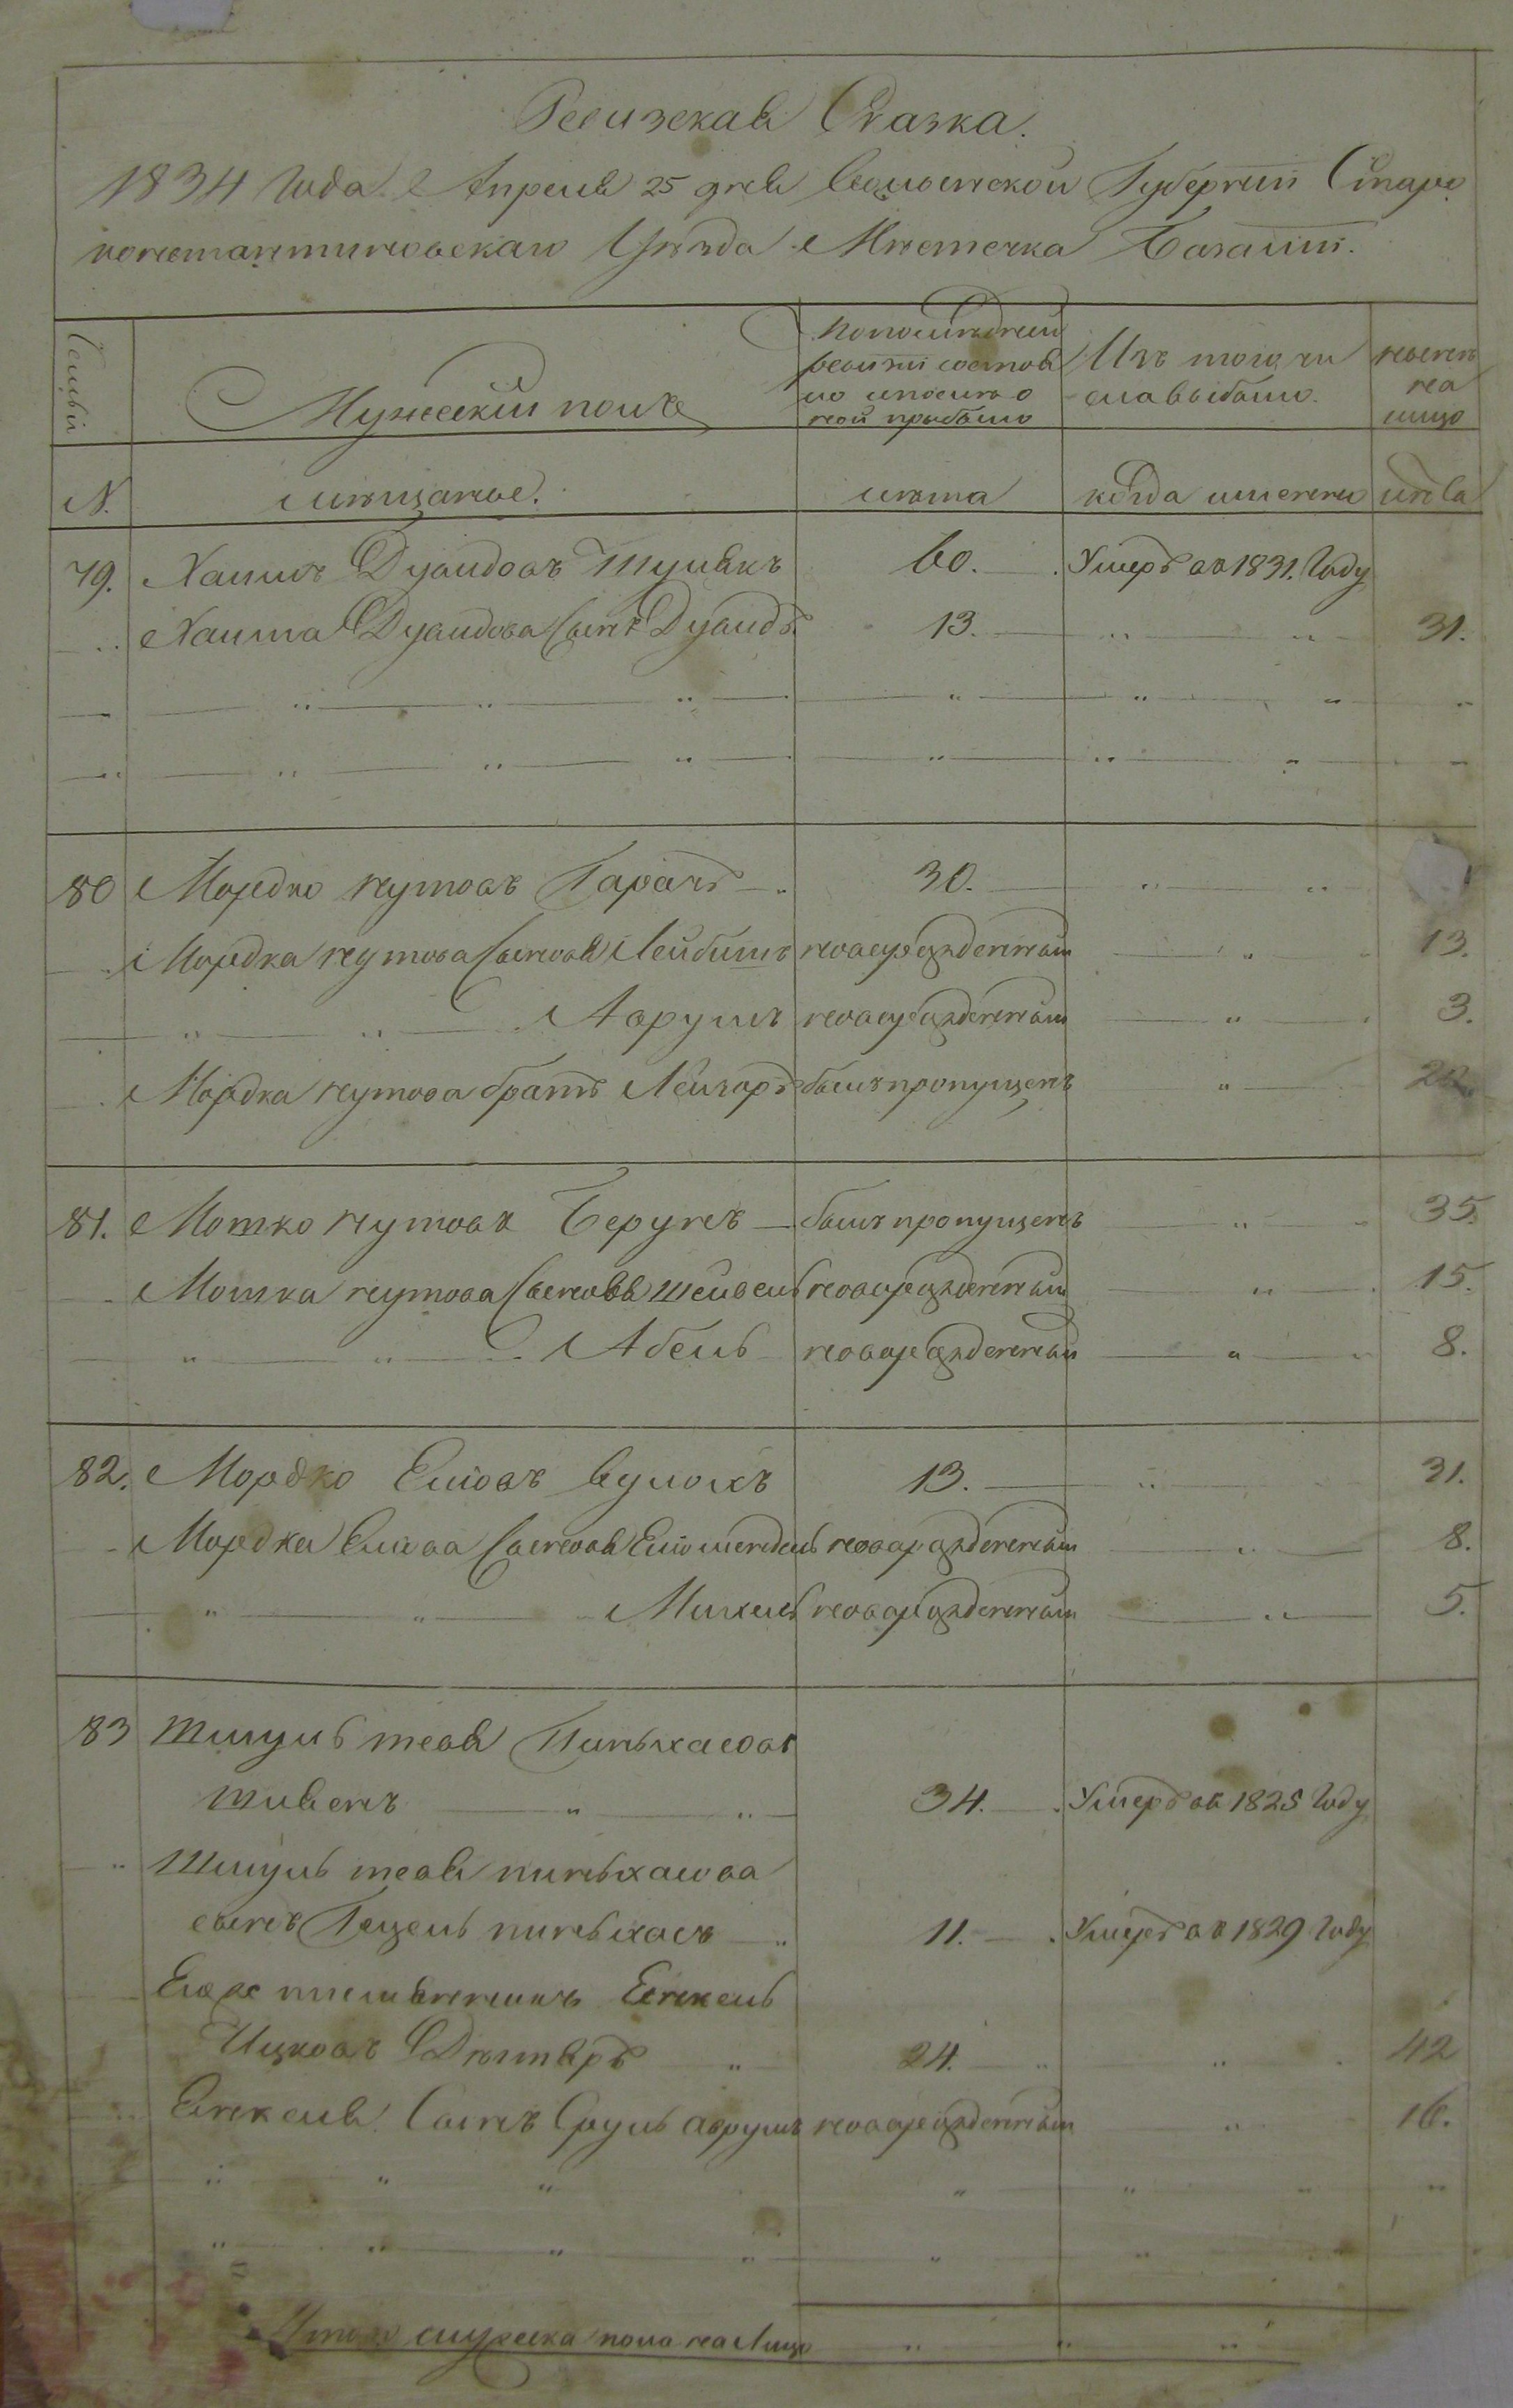 Ревизская Сказка.
1834 Года Апреля 25 дня Волынской Губернии Старо
константиновскаго Уѣзда Мѣстечка Базалии.
Семьи
Мужескій полъ
по последней ревизии состояло и после оной прибыло
Изъ того числа выбыло.
ныне на лицо
N. мѣщане. лѣта когда имянно лѣта
79. Хаимъ Дувидовъ Шулякъ 60. Умеръ въ 1831. Году
" Хаима Дувидова Сынъ Дувидъ 13. " " 31.
" " " " " " "
" " " " " " "
80 Мордко нутовъ Гарачъ 30. " "
Мордка нутова Сыновья Лейбишъ новорожденный " 13.
" " Аврумъ новорожденный " 3.
Мордка нутова братъ Лейзоръ былъ пропущенъ "
81. Мошко нутовъ Берунъ былъ пропущенъ " 35.
Мошка нутова Сыновья Шейвель новорожденный " 15.
" " Абель новорожденный " 8.
82. Мордко Еліовъ Вулохъ 13. " 31.
Мордка Еліова Сыновья Еліомендель новорожденный " 8.
" " Михель новорожденный " 5.
83 Шмуль шеая Пиньхасовъ
Шивенъ " " 34. Умеръ въ 1825 Году
" Шмуль шеая пиньхасова
сынъ Гецель пиньхасъ " 11. Умеръ въ 1829 Году
Его же племянникъ Енкель
Ицковъ Дѣхтяръ " 24. " " 42
Енкеля Сынъ Сруль аврумъ новорожденный " 16.
" " " " " " "
" " " " " "
Итого мужеска пола на Лицо " " "